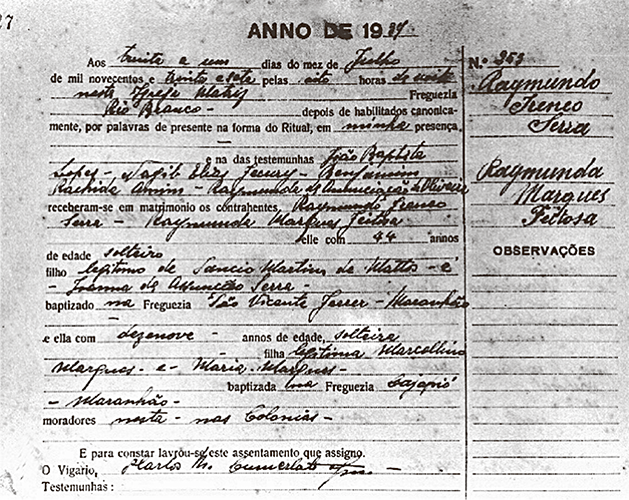 27
ANNO DE 1937
Aos trinta e um dias do mez de Julho
de mil novecentos e trinta e sete pelas oito horas da noite
nesta Igreja Matriz Freguezia
Rio Branco - depois de habilitados canonica-
mente, por palavras de presente na forma do Ritual, em minha presença
e na das testemunhas João Baptista
Lopes - Nagib Elias - Benjamim
Rachide Amim - Raymunda de Annunciação de Oliveira
receberam-se em matrimonio os contrahentes, Raymundo Ireneo
Serra - Raymunda Marques Feitosa
elle com 44 annos
de edade solteiro
filho legitimo de Sancio Martins de Mattos - e
- Joanna de Assumcão Serra -
baptizado na Freguezia São Vicente Ferrer - Maranhão
e ella com dezenove - annos de edade, solteira
filha legitima Marcellino
Marques - e - Maria Marques -
baptizada na Freguezia Cajapió
- Maranhão -
moradores nesta - nas Colonias -
E para constar lavrou-se este assentamento que assigno.
O Vigario,
Testemunhas :
N.º 353
Raymundo
Ireneo
Serra
Raymunda
Marques
Feitosa
OBSERVAÇÕES